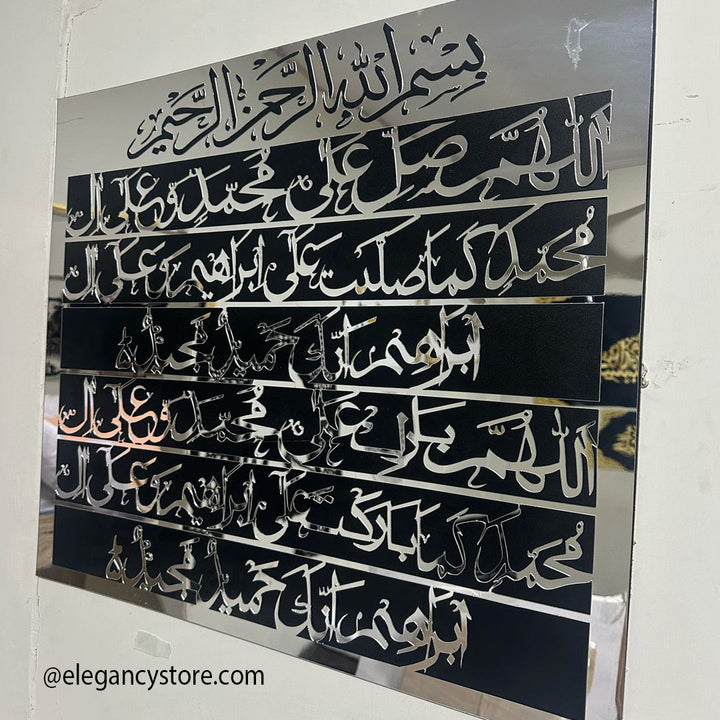 بسم الله الرحمن الرحيم
اللهم صل على محمد وعلى ال
محمد كما صليت على ابراهيم وعلى ال
ابراهيم انك حميد مجيد
اللهم بارك على محمد وعلى ال
محمد كما باركت على ابراهيم وعلى ال
ابراهيم انك حميد مجيد
@elegancystore.com